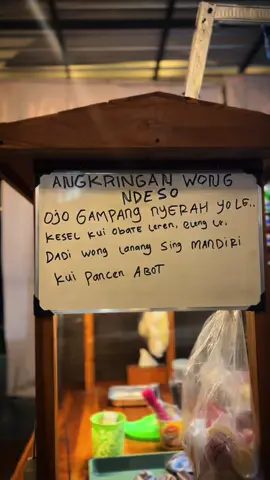 ANGKRINGAN WONG
NDESO
OJO GAMPANG NYERAH YO LE..
KESEL KUI OBATE LEREN,
DADI WONG LANANG SING MANDIRI
KUI PANCEN ABOT